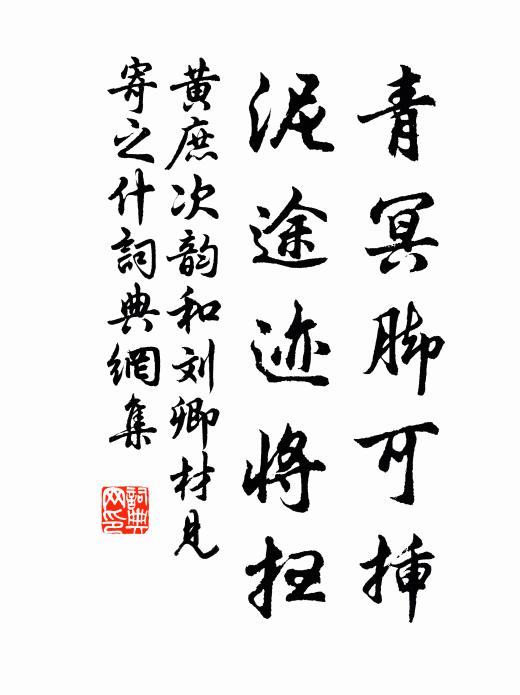 青冥脚可插
泥途迹将扫
黄庶次韵和刘卿材见
寄之什詞典網集
詞典网印